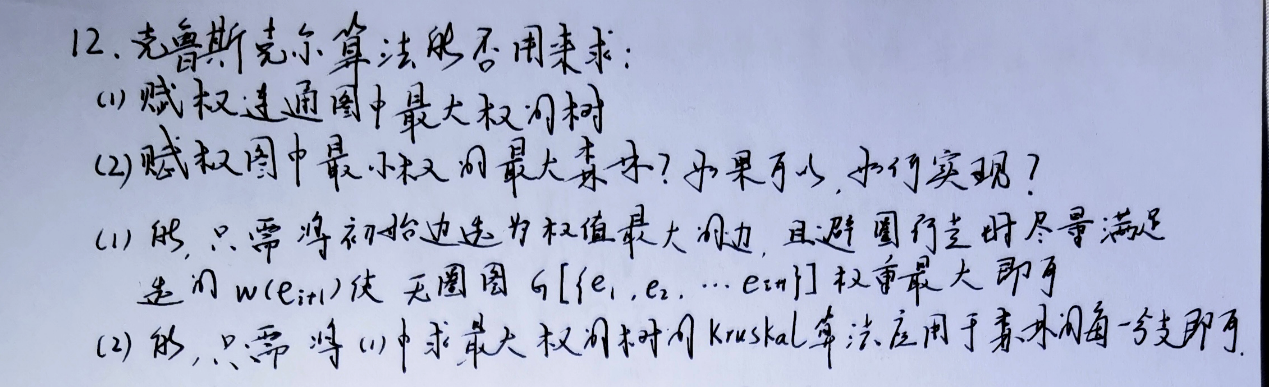 12、克鲁斯克尔算法能否用来求:
(1) 赋权连通图中最大权的树
(2) 赋权图中最小权的最大森林?如果可以,如何实现?
(1) 能,只需将初始边选为权值最大的边,且避圈行走时尽量满足
选的 w(eᵢ₊₁)使 无圈图 G[{e₁,e₂,…eᵢ₊₁}]权重最大即可
(2) 能,只需将(1)中求最大权的树的Kruskal算法应用于森林的每一分支即可.